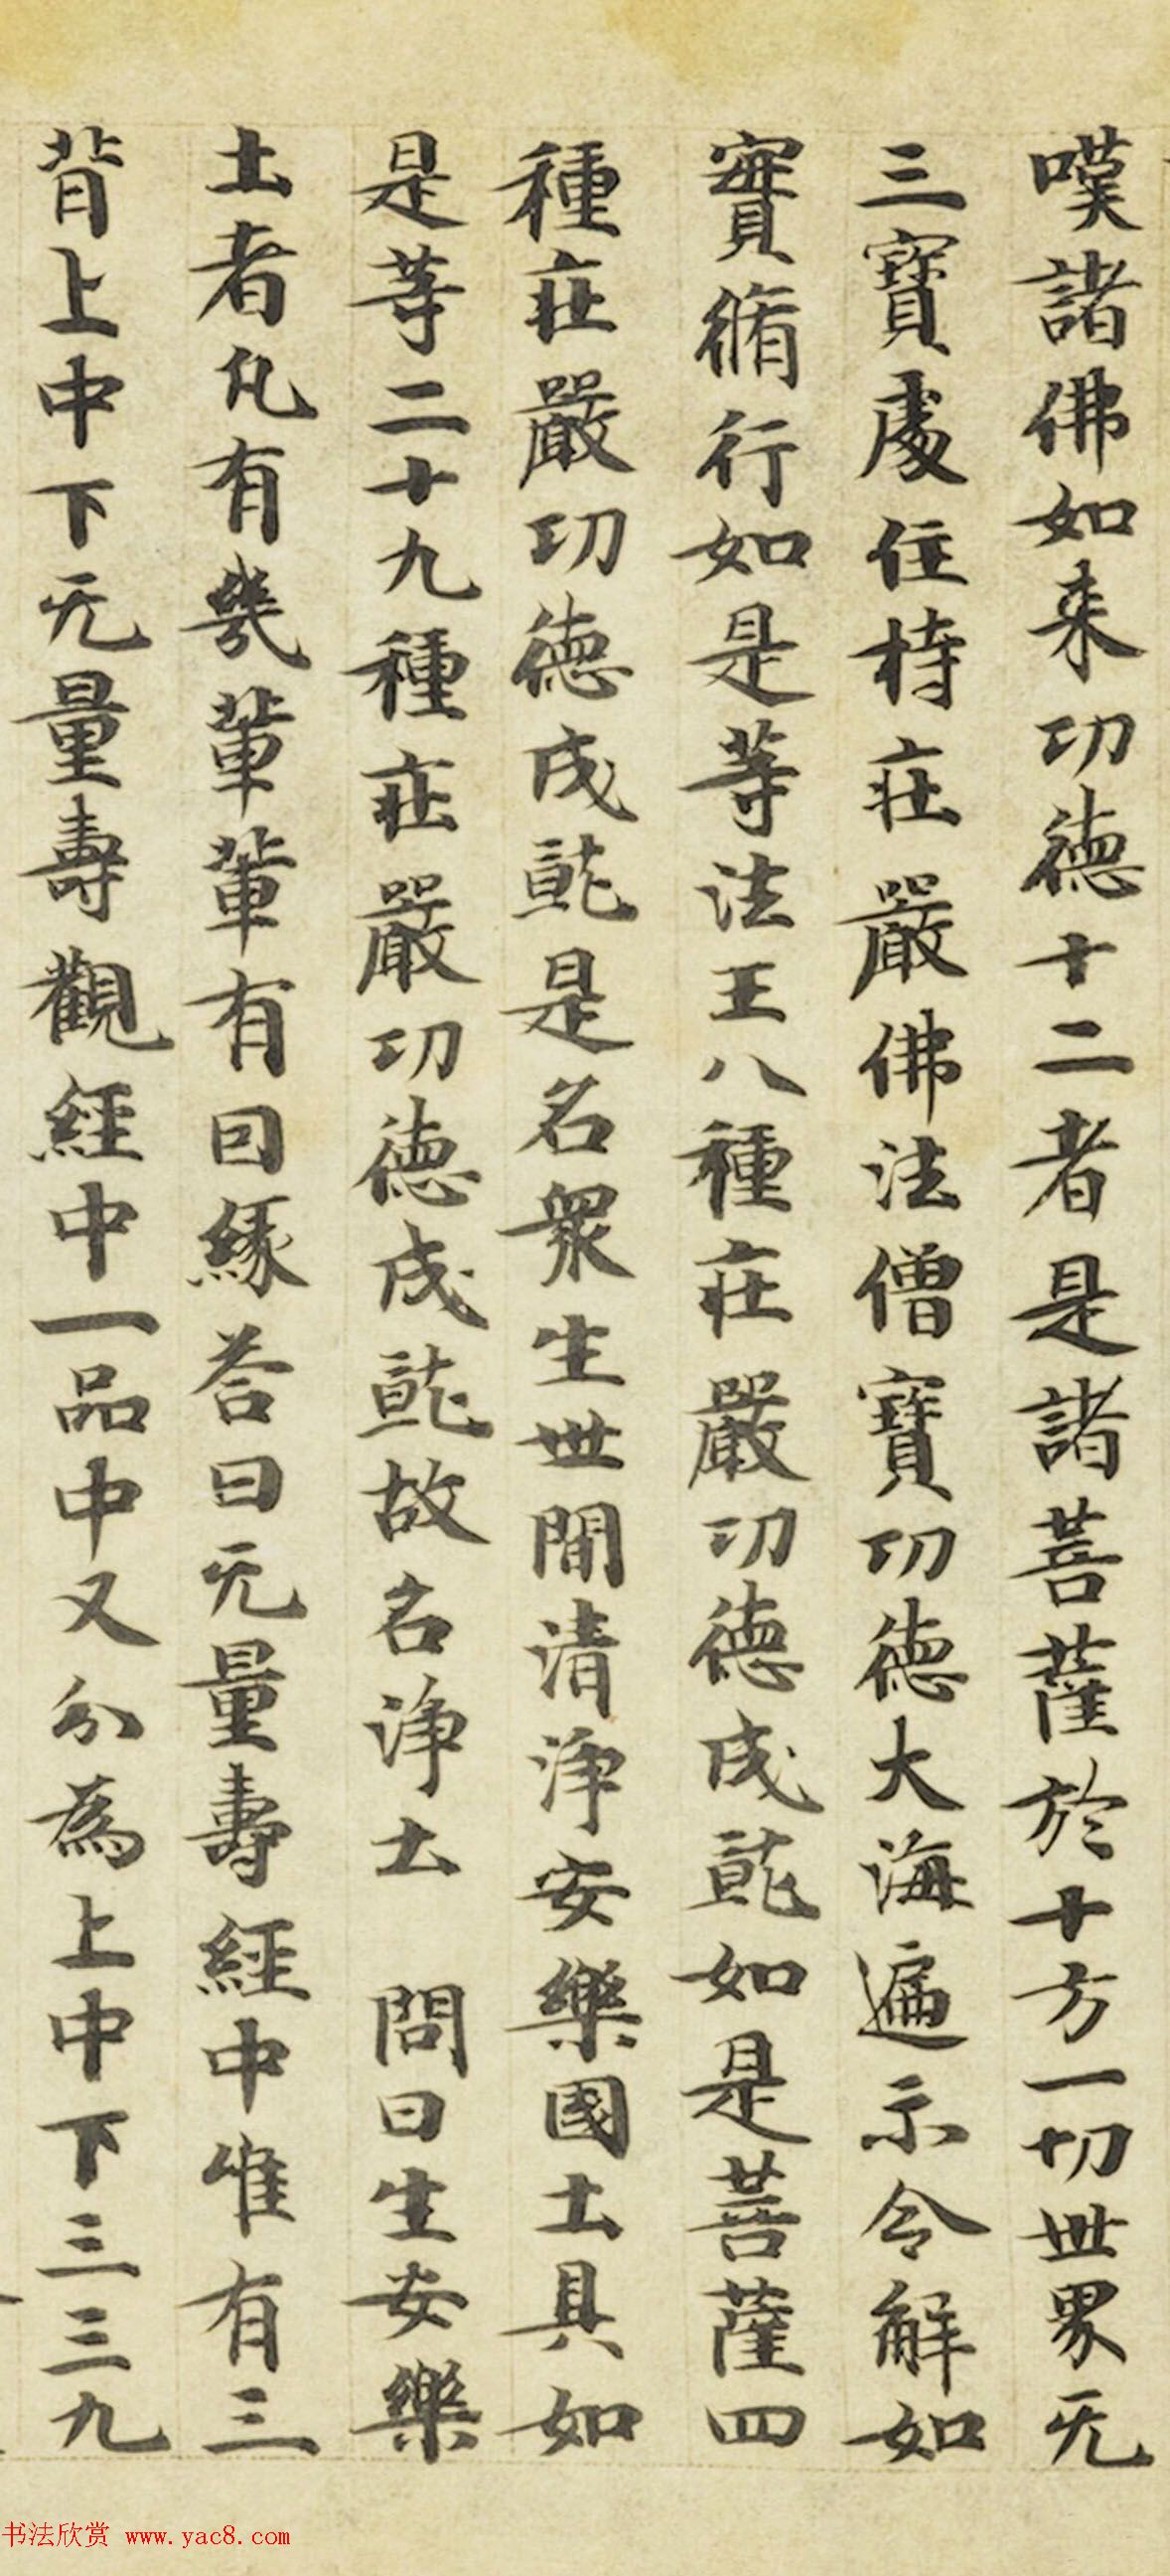 嘆諸佛如来功德十二者是諸菩薩於十方一切世界无
三寶處住持莊嚴佛法僧寶功德大海遍示令解如
實脩行如是等法王八種莊嚴功德成就如是菩薩四
種莊嚴功德成就是名衆生世間清淨安樂國土具如
是等二十九種莊嚴功德成就故名淨土 問曰生安樂
土者凡有幾輩輩有回緣荅曰无量壽經中唯有三
輩上中下无量壽觀經中一品中又分為上中下三三九
书法欣赏 www.yac8.com